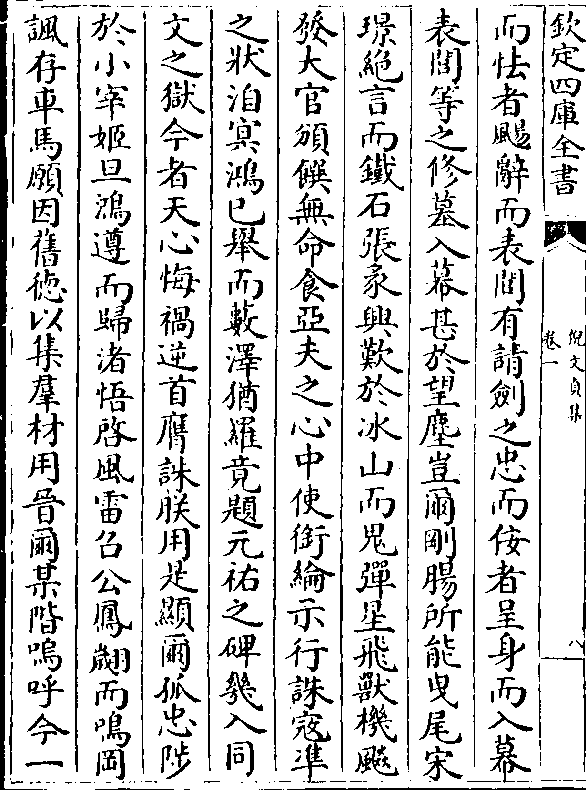 欽定四庫全書
倪文貞集
卷一
八
而怯者颺辭而表閭有請劍之忠而佞者呈身而入幕
表閭等之修墓入幕甚於望塵豈爾剛腸所能曳尾宋
璟絶言而鐵石張彖興歎於冰山而鬼彈星飛獸機飈
發大官頒饌無命食亞夫之心中使銜綸示行誅寇凖
之狀洎冥鴻已舉而藪澤猶羅竟題元祐之碑幾入同
文之獄今者天心悔禍逆首膺誅朕用是顯爾孤忠陟
於小宰姬旦鴻遵而歸渚悟啓風雷召公鳳翽而鳴岡
諷存車馬願因舊徳以集羣材用晉爾某階嗚呼今一